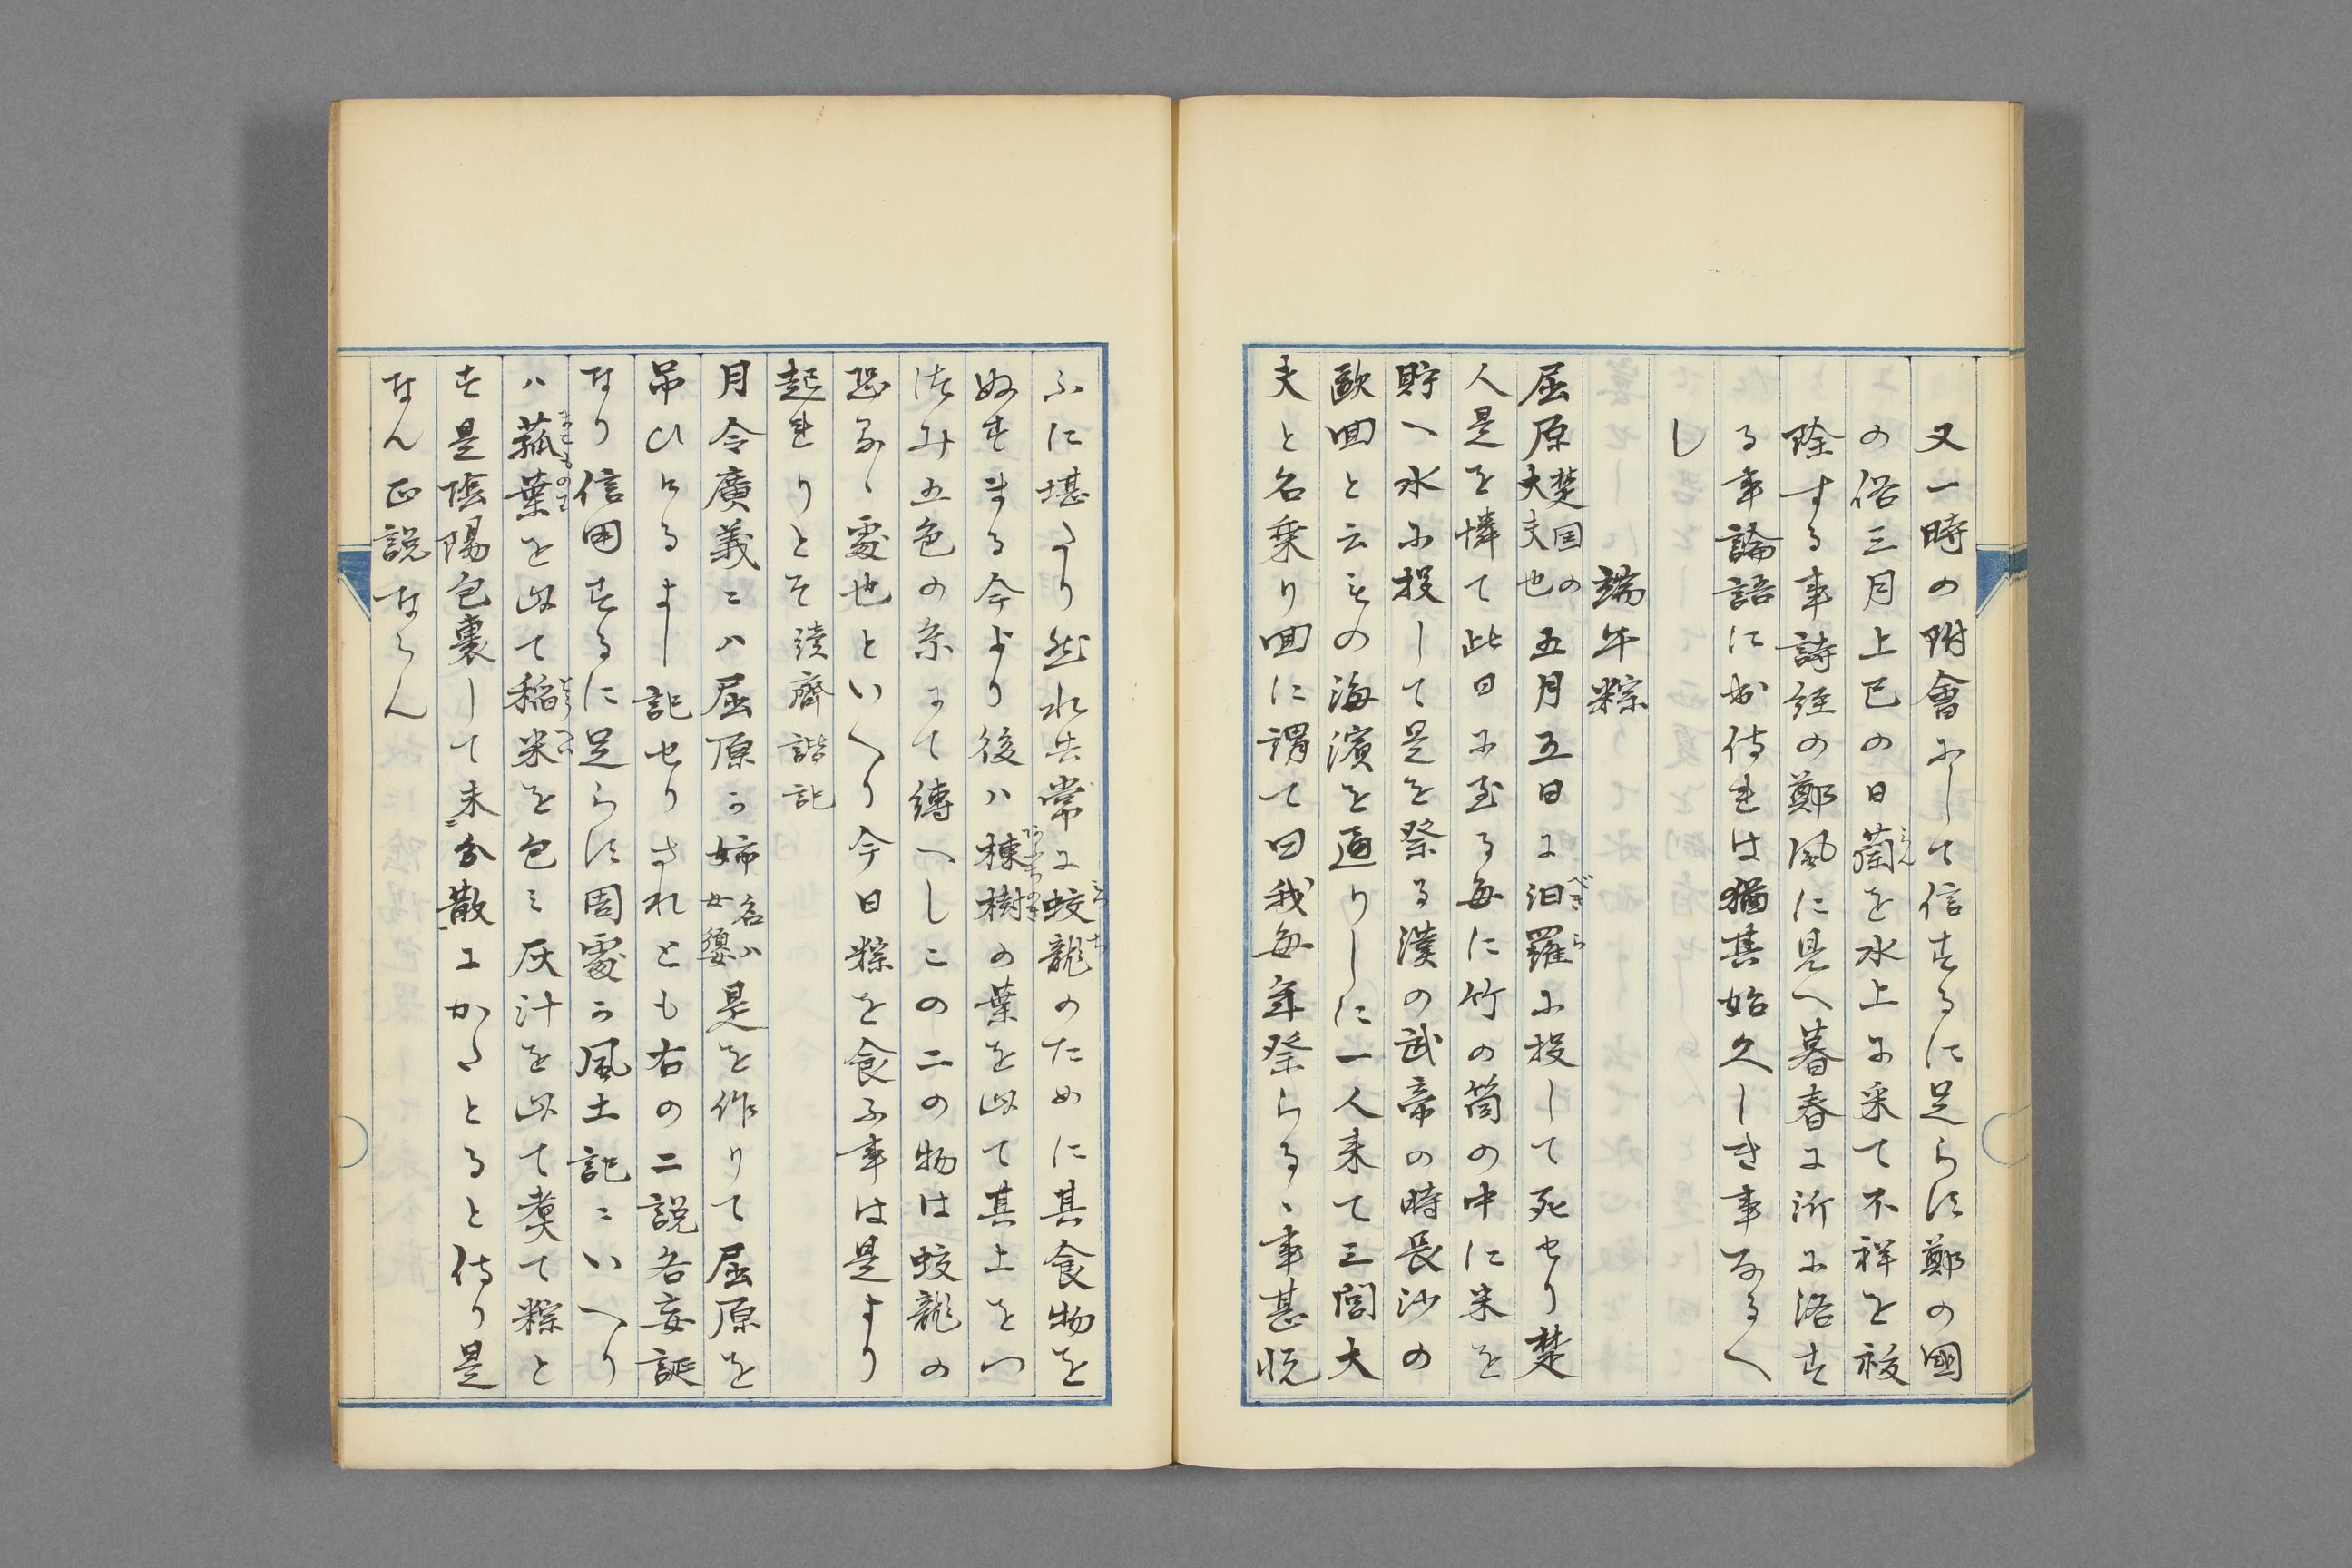 又一時の附會にして信するに足らす鄭の國
の俗三月上巳の日蕳を水上に采て不祥を祓
除する事詩経の鄭風に見へ暮春に沂に浴す
る事論語に出侍れは猶其始久しき事なるへ
し
端午粽
屈原楚国の大夫也五月五日に汨羅に投して死せり楚
人是を憐て此日に至る毎に竹の筒の中に米を
貯へ水に投して是を祭る漢の武帝の時長沙の
歐回と云もの海濱を通りしに一人来て三閭大
夫と名乗り回に謂て曰我毎年祭らるゝ事甚悦
ふに堪たり然れ共常に蛟龍のために其食物を
ぬすまる今より後ハ楝樹の葉を以て其上をつ
つみ五色の糸にて縛へしこの二の物は蛟龍の
恐るゝ處也といへり今日粽を食ふ事は是より
起れりとそ續齊諧記
月令廣義ニハ屈原か姉名ハ女嬃是を作りて屈原を
吊ひけるよし記せりされとも右の二説各妄誕
なり信用するに足らす周處か風土記ニいへり
ハ菰葉を以て稲米を包ミ灰汁を以て煑て粽と
す是陰陽包裹して未分散にかたとると侍り是
なん正説ならん